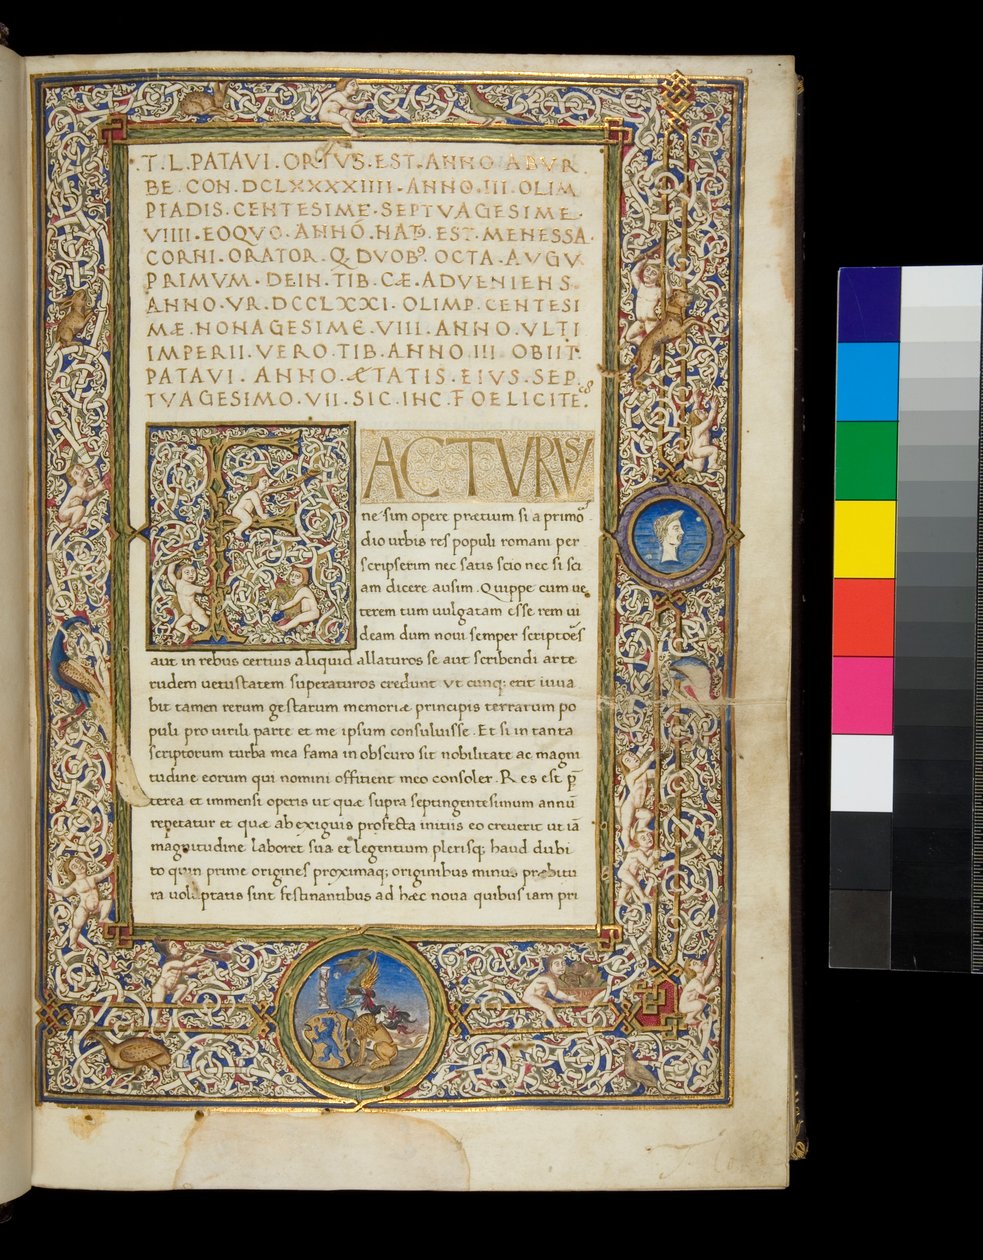 T.L.PATAVI.ORTVS.EST.ANNO.ABVR
BE.CON.DCLXXXXIIII.ANNO.III.OLIM
PIADIS.CENTESIME.SEPTVAGESIME.
VIIII.EOQVO.ANNŌ.NATꝰ.EST.MENESSA
CORNI.ORATOR.Q.DVOBꝰ.OCTA.AVGV
PRIMVM.DEIN.TIB.CÆ.ADVENIENS
ANNO.VR.DCCLXXI.OLIMP.CENTESI
MÆ.NONAGESIME.VIII.ANNO.VLTI
IMPERII.VERO.TIB.ANNO.III.OBIIT.
PATAVI.ANNO.ÆTATIS.EIVS.SEP
TVAGESIMO.VII.SIC.INC.FOELICITE.
FACTVRVS
ne sim opere prætium si a primō
dio urbis res populi romani per
scripserim nec satis scio nec si sci
am dicere ausim. Quippe cum ue
terem tum uulgatam esse rem ui
deam dum noui semper scriptōēs
aut in rebus certius aliquid allaturos se aut scribendi arte
rudem uetustatem superaturos credunt Vt cunq; erit iuua
bit tamen rerum gestarum memoriæ principis terrarum po
puli pro uirili parte et me ipsum consuluisse. Et si in tanta
scriptorum turba mea fama in obscuro sit nobilitate ac magni
tudine eorum qui nomini offitient meo consoler. Res est p̄
terea et immensi operis ut quæ supra septingentesimum annū
repetatur et quæ ab exiguis profecta initiis eo creuerit ut iā
magnitudine laboret sua et legentium plerisq; haud dubi
to quin prime origines proximaq; originibus minus præbitu
ra voluptatis sint festinantibus ad hæc noua quibus iam pri